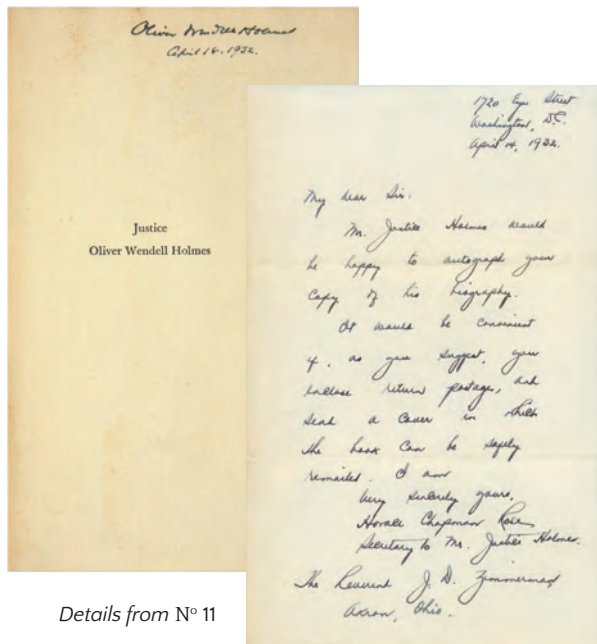 Oliver Wendell Holmes
April 18. 1932.
Justice
Oliver Wendell Holmes
1720 Eye Street
Washington, D.C.
April 14, 1932.
My dear Sir:
Mr. Justice Holmes would
be happy to autograph your
copy of his biography.
It would be convenient
if, as you suggest, you
enclose return postages, and
send a cover in which
the book can be safely
remailed. I am
Very sincerely yours,
Horace Chapman Rose
Secretary to Mr. Justice Holmes.
The Reverent J. D. Zimmerman,
Akron, Ohio.
Details from Nº 11